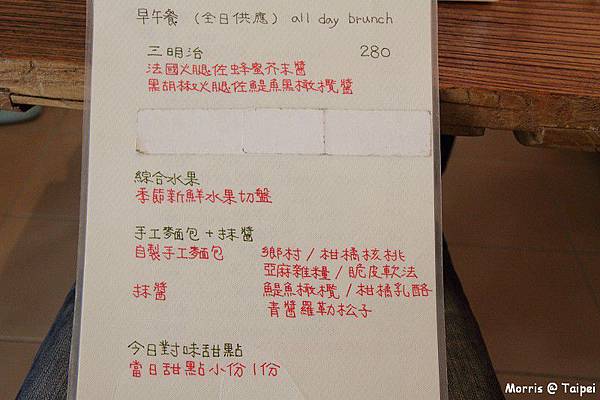 早午餐 (全日供應) all day brunch
三明治 280
法國火腿佐蜂蜜芥末醬
黑胡椒火腿佐鯷魚黑橄欖醬
綜合水果
季節新鮮水果切盤
手工麵包+抹醬
自製手工麵包 鄉村/柑橘核桃
亞麻雜糧/脆皮軟法
抹醬 鯷魚橄欖/柑橘乳酪
青醬羅勒松子
今日對味甜點
當日甜點小份1份
Morris @ Taipei